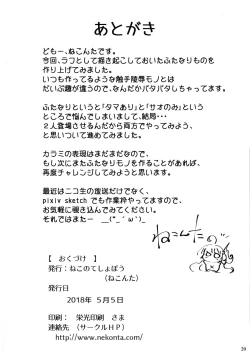 あとがき
どもー、ねこんたです。
今回、ラフとして描き起こしておいたふたなりものを
作り上げてみました。
いつも作ってるような触手陵辱モノとは
だいぶ趣が違うので、なんだかバタバタしちゃってます。
ふたなりというと「タマあり」と「サオのみ」という
ところで悩んでしまいまして、結局・・・
２人登場させるんだから両方でやってみよう、
と思いついて進めてみました。
カラミの表現はまだまだなので、
もし次にまたふたなりモノを作ることがあれば、
再度チャレンジしてみようと思います。
最近はニコ生の放送だけでなく、
pixiv sketch でも作業枠やってますので、
お気軽に覗き込んでみてください。
それではまたー　__(°_´ω｀)_
ねこんた=
【 おくづけ 】
発行：ねこのてしょぼう
（ねこんた）
発行日
2018年 ５月５日
印刷： 栄光印刷 さま
連絡先 （サークルＨＰ）
http://www.nekonta.com/
29